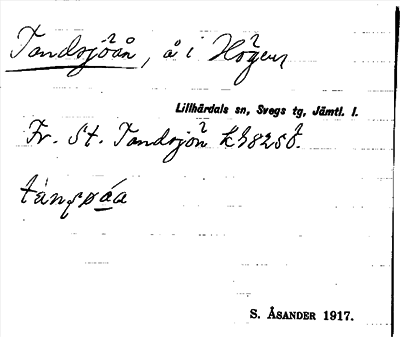 Tandsjöån, å i Högen
Lillhärdals sn, Svegs tg, Jämtl. l.
Fr. St. Tandsjön
tánsøáa
S. ÅSANDER 1917.